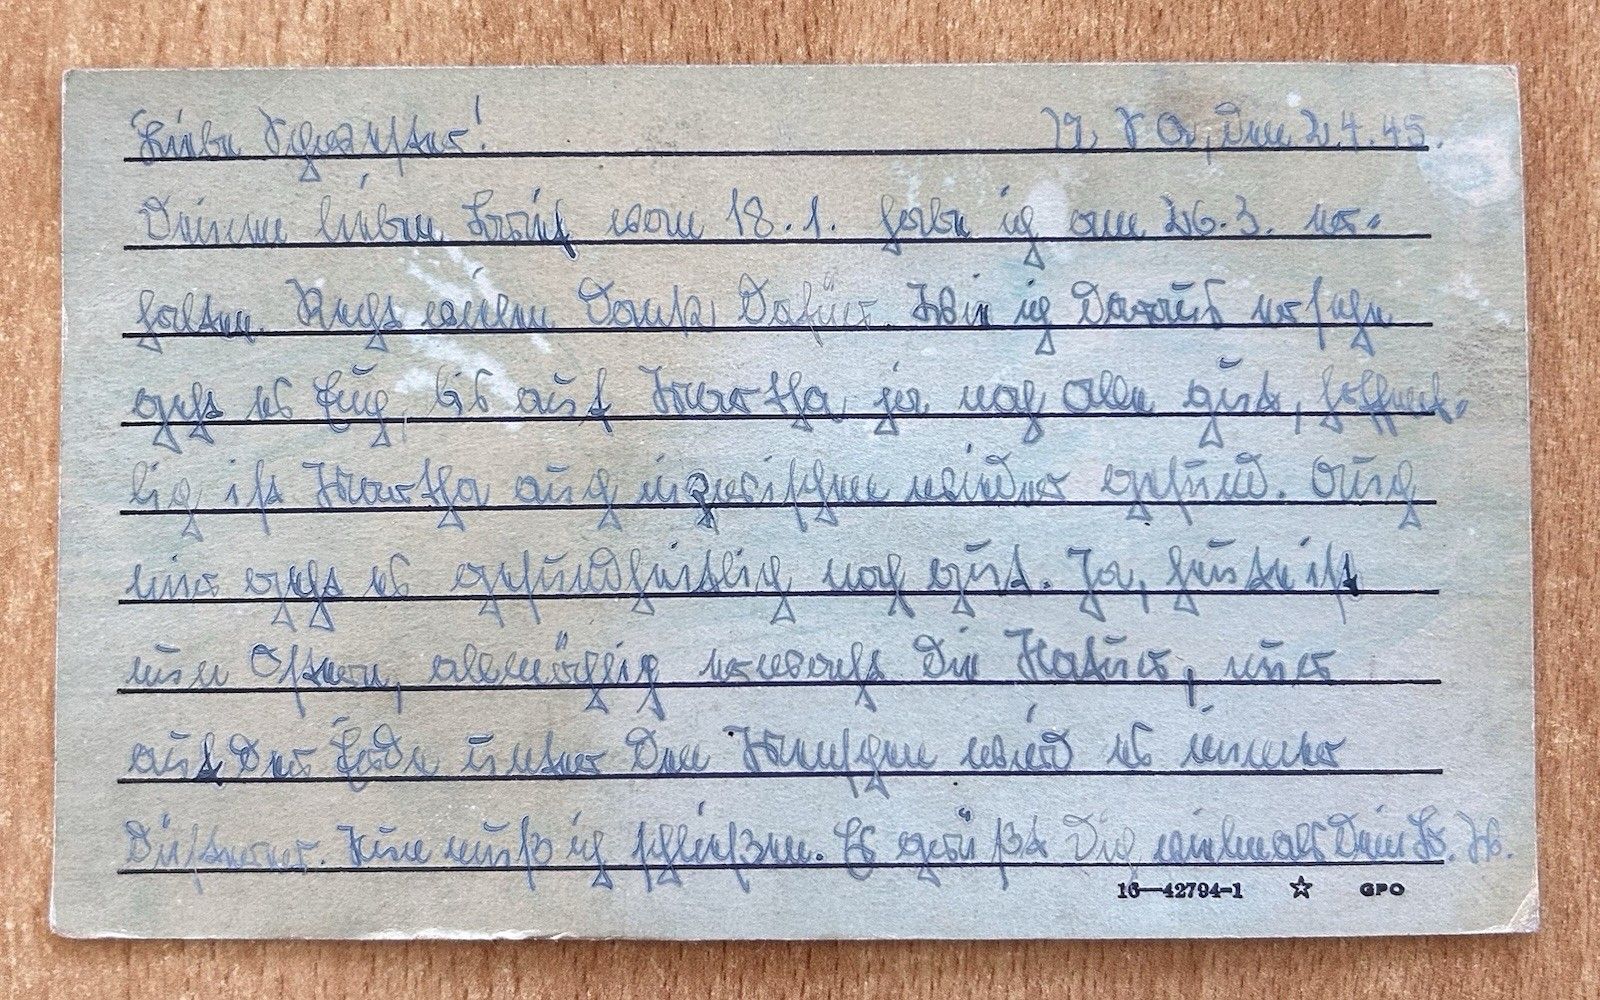 Liebe Schwester! den 2.4.45.
Deinen lieben Brief vom 18.1. habe ich am 26.3. er-
halten. Recht vielen Dank dafür. Wie ich daraus ersehe
geht es Euch, bis auf Martha ja noch alle gut, hoffent-
lich ist Martha auch inzwischen wieder gesund. Auch
mir geht es gesundheitlich noch gut. Ja, heute ist
nun Ostern, allmählig erwacht die Natur, nur
auf der Erde unter den Menschen wird es immer
düsterer. Nun muß ich schließen. Es grüßt Dich vielmals Dein Br.
16—42794-1 ☆ GPO